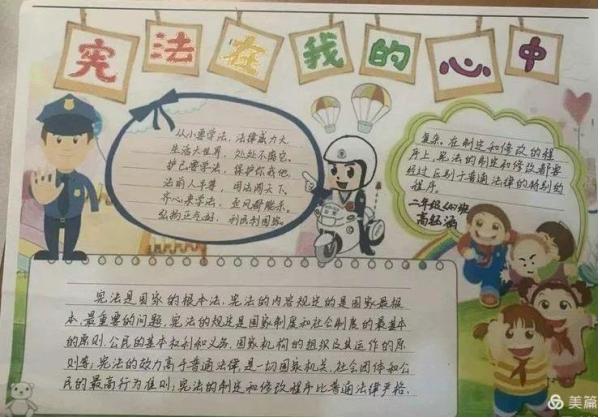 宪法在我的心中
从小要学法,法律威力大
生活大世界,处处不离它。
护己要学法,保护你我他
法前人平等,司法阔天下,
齐心来学法,歪风邪能杀。
弘扬正气时,利民利国家。
复杂。在制定和修改的程
序上,宪法的制定和修改都要
经过区别于普通法律的特别的
程序。
二年级(4)班
宪法是国家的根本法,宪法的内容规定的是国家最根
本,最重要的问题,宪法的规定是国家制度和社会制度的最基本
的原则,公民的基本权利和义务,国家机构的组织及其运作的原
则等;宪法的效力高于普通法律,是一切国家机关,社会团体和公
民的最高行为准则;宪法的制定和修改程序比普通法律严格、
美篇